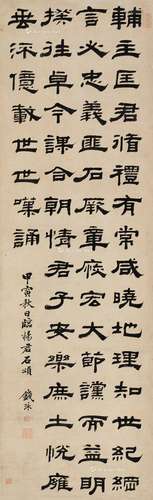 輔主匡君循禮有常咸曉地理知世紀綱
言必忠義匪石厥章恢宏大節讜而益明
揆往卓今謀合朝情君子安樂庶士悅雍
垂流億載世世嘆誦
甲寅秋日臨楊君石頌 錢泳